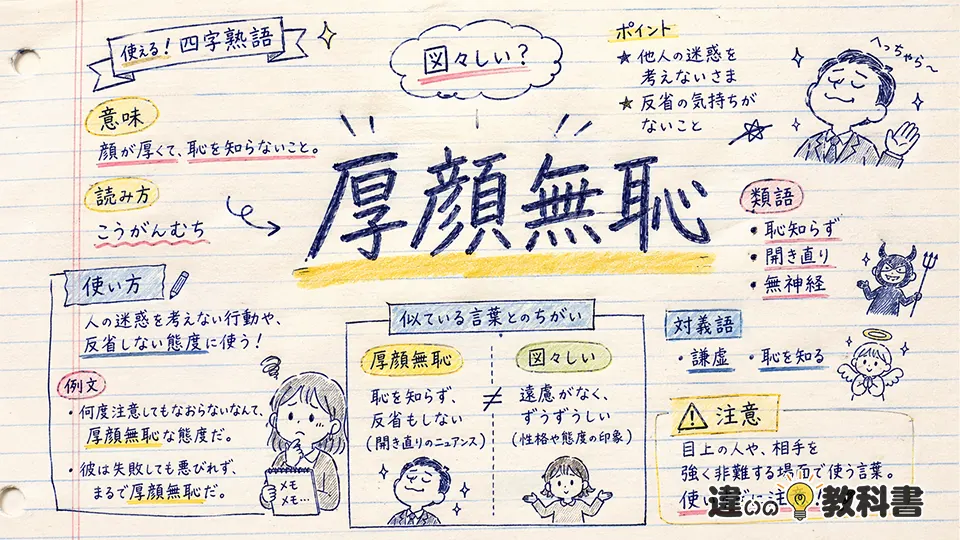 使える！四字熟語
図々しい？
ポイント
★他人の迷惑を
考えないさま
★反省の気持ちが
ないこと
へっちゃら〜
意味
顔が厚くて、恥を知らないこと。
読み方
こうがんむち
厚顔無恥
類語
・恥知らず
・開き直り
・無神経
対義語
・謙虚 ・恥を知る
使い方
人の迷惑を考えない行動や、
反省しない態度に使う！
例文
・何度注意してもなおらないなんて、
厚顔無恥な態度だ。
・彼は失敗しても悪びれず、
まるで厚顔無恥だ。
メモ
メモ…
似ている言葉とのちがい
厚顔無恥
恥を知らず、
反省もしない
(開き直りのニュアンス)
≠
図々しい
遠慮がなく、
ずうずうしい
(性格や態度の印象)
注意
目上の人や、相手を
強く非難する場面で使う言葉。
使い
違いの教科書